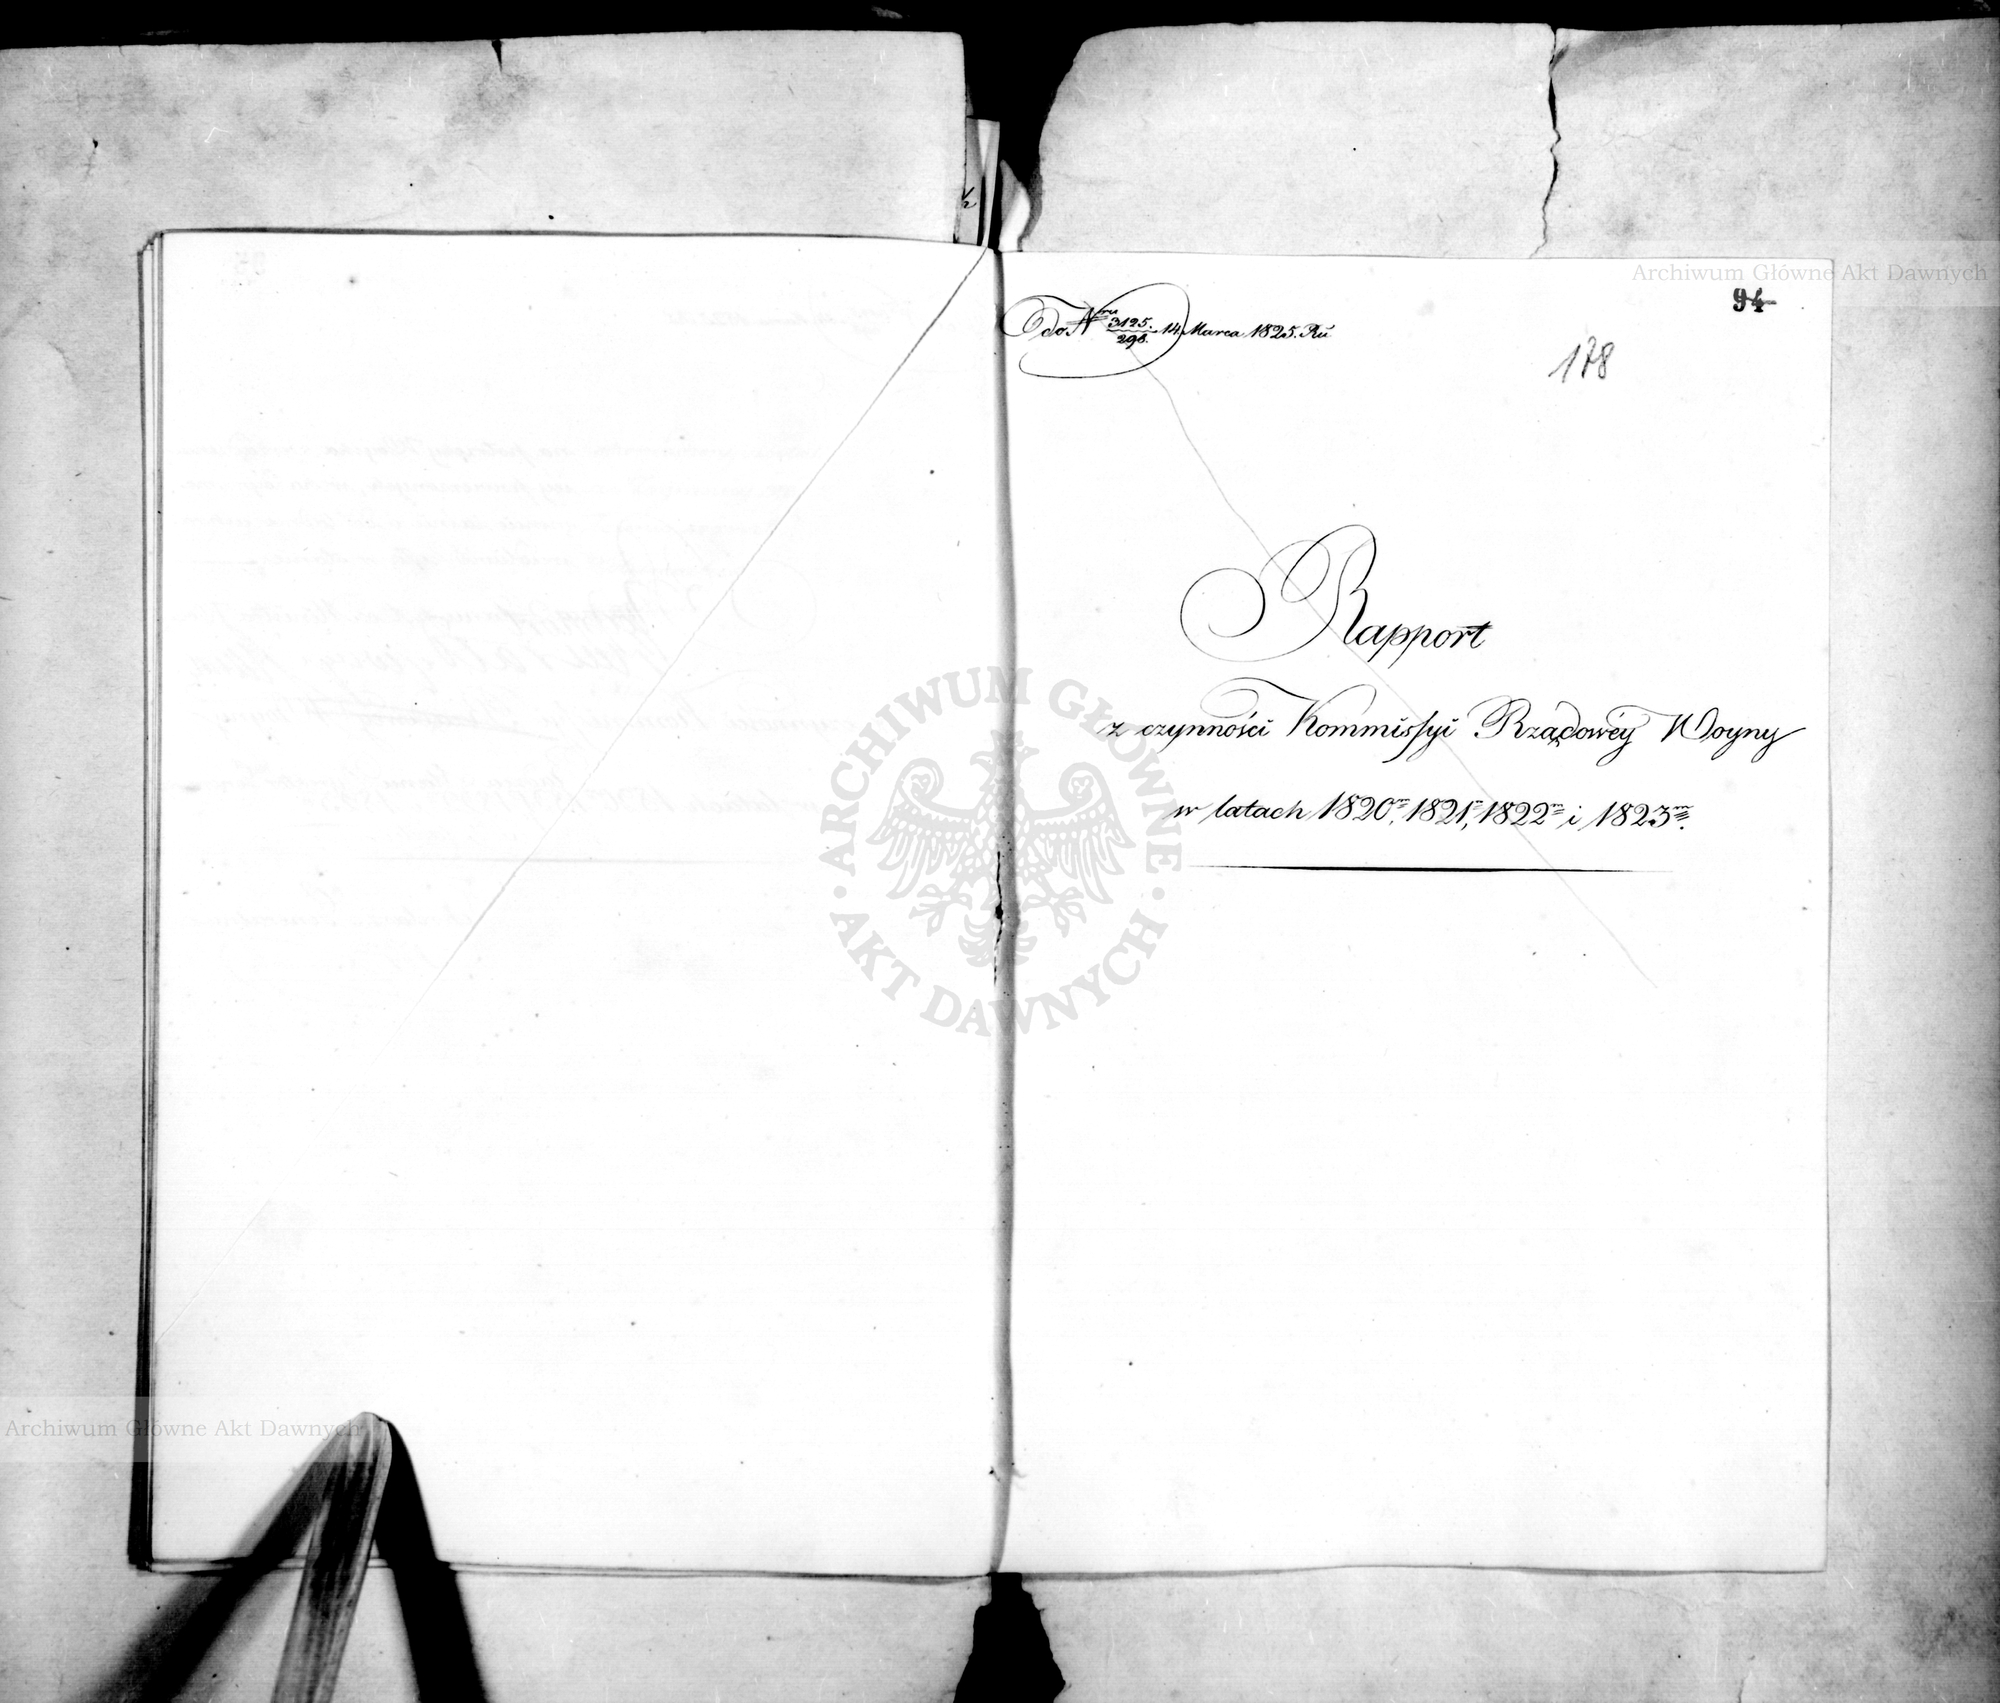 Archiwum Główne Akt Dawnych
94
do Nru 3125./298. 14 Marca 1825. Ru
178
Rapport
z czynności Kommissyi Rządowéy Woyny
w latach 1820m, 1821m, 1822m i 1823m.
ARCHIWUM GŁÓWNE
AKT DAWNYCH
Archiwum Główne Akt Dawnych